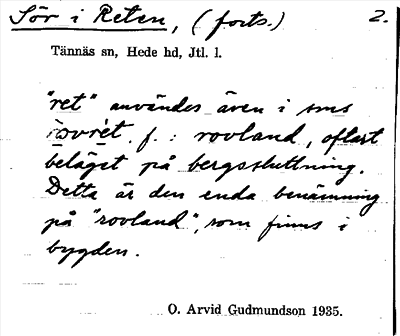 Sör i Reten, (forts.) 2.
Tännäs sn, Hede hd, Jtl. l.
"ret" användes även i sms
rovret. f. : rovland, oftast
beläget på bergssluttning.
Detta är den enda benämning
på "rovland", som finns i
bygden.
O. Arvid Gudmundson 1935.